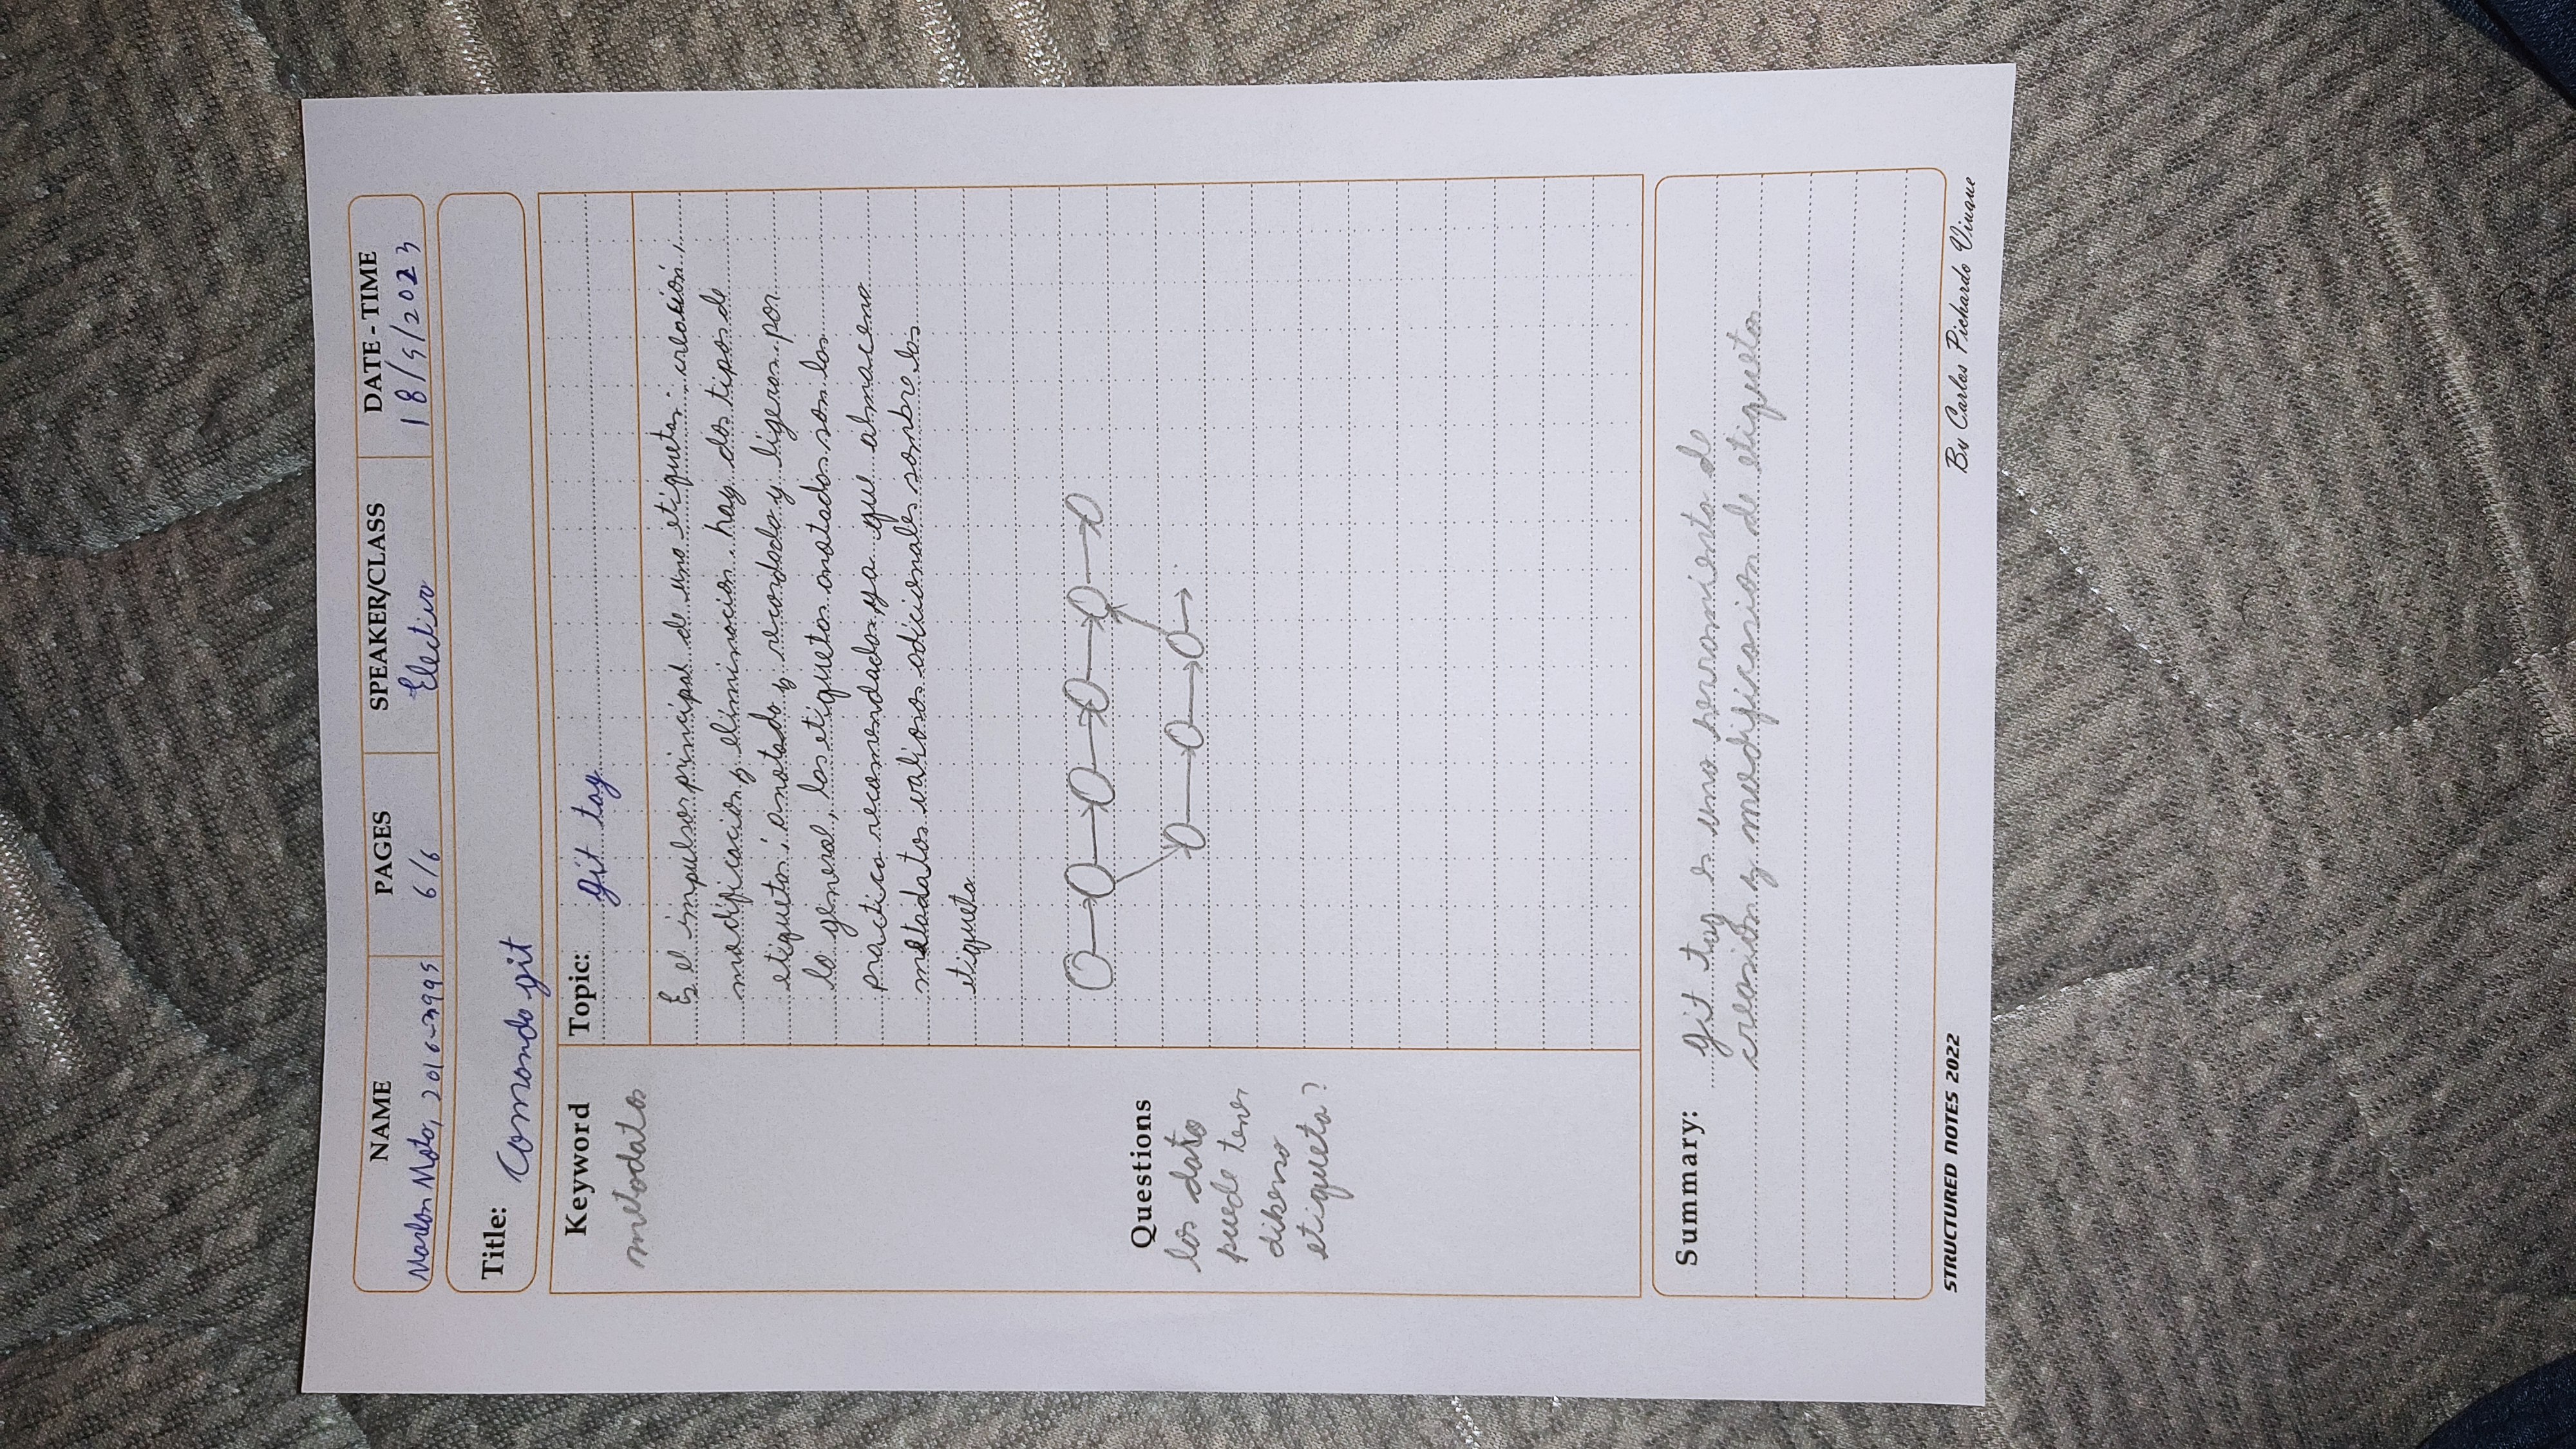 NAME PAGES SPEAKER/CLASS DATE - TIME
Marlon Mota, 2016-3995 6/6 Electiva 18/5/2023
Title: Comando git
Keyword Topic: git tag
metadatos
Es el impulsor principal de una etiqueta: creación,
modificacion y eliminacion. hay dos tipos de
etiquetas: anotada y recordada y ligeras. por
lo general, las etiquetas anotadas son las
practica recomendadas ya que almacena
metadatos valiosos adicionales sombre las
etiqueta
Questions
los dato
puede tener
diberso
etiqueta?
Summary: git tag es una herramienta de
creasion y modificasion de etiquetas
STRUCTURED NOTES 2022 By Carlos Pichardo Viuque